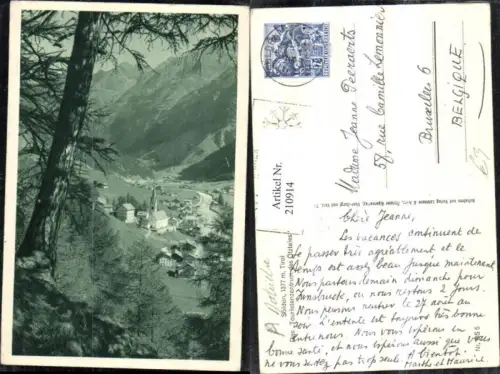 Madame Jeanne Peeraerts
58, rue Camille Lemonnier
Bruxelles 6
BELGIQUE
Artikel Nr.
210914
Sölden, 1377 m, Tirol
Chère Jeanne,
Les vacances continuent de
se passer très agréablement et le
temps est assez beau jusque maintenant
Nous partons demain dimanche pour
Innsbruck, où nous restons 2 jours.
Nous pensons rentrer le 27 août au
soir. L'entente est toujours très bonne
entre nous. Nous vous espérons en
bonne santé, et nous espérons aussi que vous
ne vous sentez pas trop seule. A bientôt.
Marthe et Maurice.